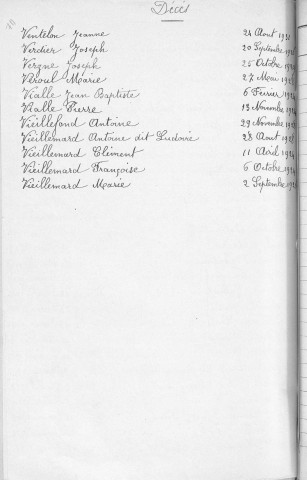 Décès
Ventelon Jeanne 24 Aout
Verdier Joseph 20 Septembre
Vergne Joseph 25 Octobre
Veroul Marie 27 Mai
Vialle Jean Baptiste 6 Février
Vialle Pierre 13 Novembre
Vieillefond Antoine 29 Novembre
Vieillemard Antoine dit Ludovic 28 Aout
Vieillemard Clément 11 Avril
Vieillemard Françoise 6 Octobre
Vieillemard Marie 2 Septembre